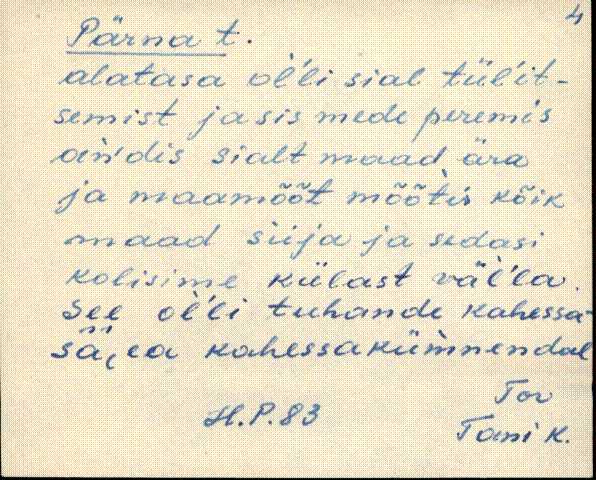 4
Pärna t.
alatasa ol'li sial tül'it-
semist ja sis mede peremìs
an'dis sialt maad ära
ja maamõõt mõõtis kõik
maad siija ja sedasi
kolisime külast väl'la.
See ol'li tuhande kahessa-
sä,ea kahessakümnendal
H.P.83
Tor
Tani k.